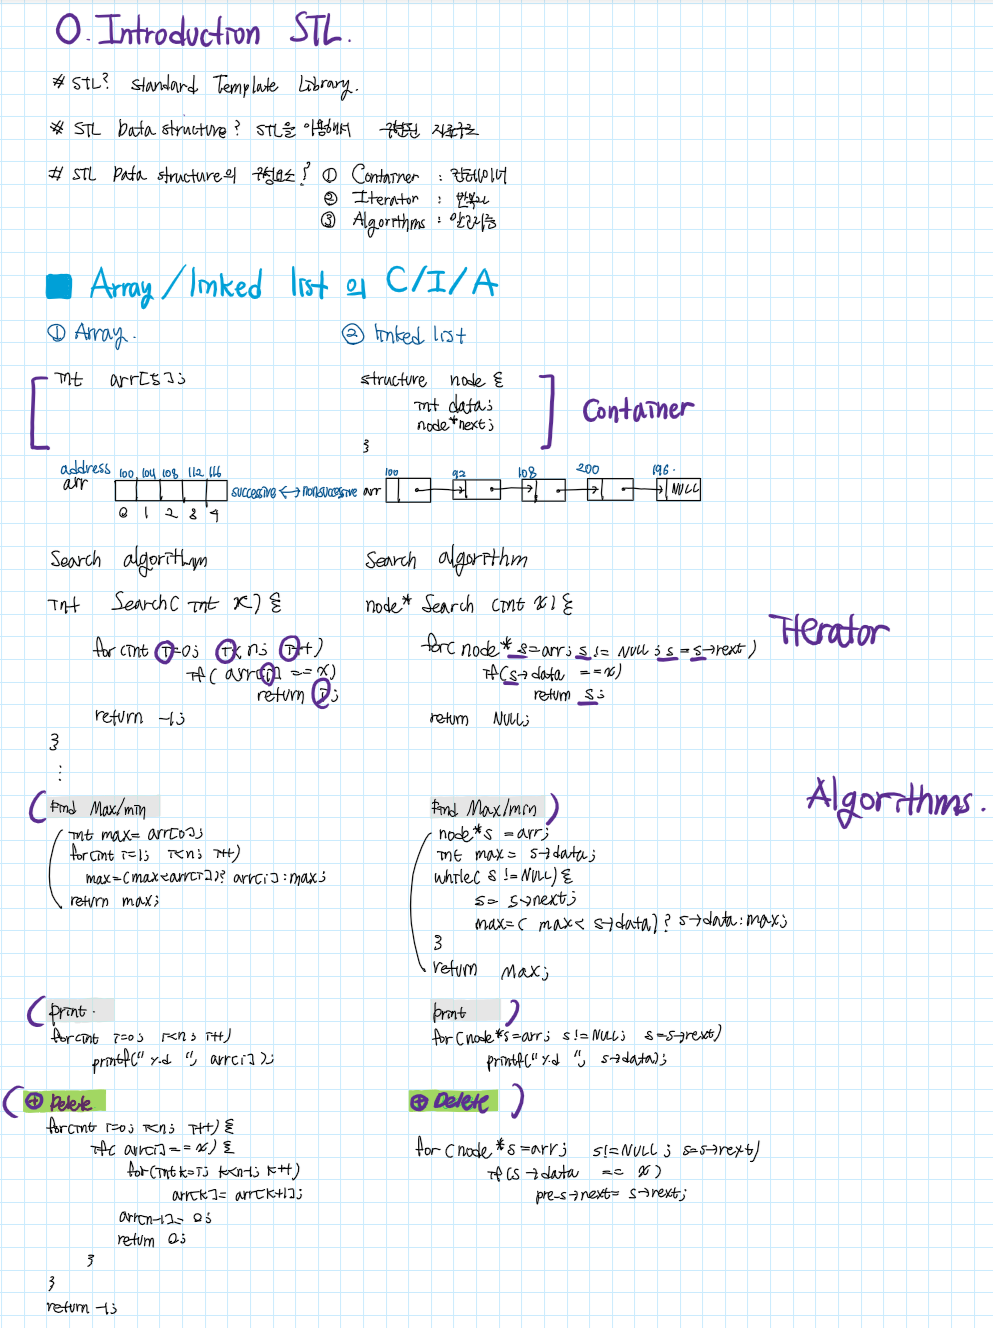 0. Introduction STL.
# STL? standard Template Library.
# STL Data structure? STL을 이용해서 구현된 자료구조
# STL Data structure의 구성요소? ① Container : 컨테이너
② Iterator : 반복자
③ Algorithms : 알고리즘
Array/linked list의 C/I/A
① Array.
② linked list
int arr[5];
structure node {
int data;
node*next;
}
Container
address 100 104 108 112 116
arr
0 1 2 3 4
successive ↔ nonsuccesive
arr 100 92 108 200 196.
NULL
Search algorithm
int Search( int x) {
for(int i=0; i<n; i++)
if( arr[i] == x)
return i;
return -1;
}
⋮
Search algorithm
node* Search (int x) {
for( node* s=arr; s != NULL; s = s→next)
if(s→data == x)
return s;
return NULL;
Iterator
Algorithms.
(find Max/min
int max= arr[0];
for(int i=1; i<n; i++)
max=(max<arr[i])? arr[i]:max;
return max;
find Max/min)
node*s =arr;
int max= s→data;
while( s !=NULL) {
s= s→next;
max=( max< s→data)? s→data:max;
}
return max;
(print.
for(int i=0; i<n; i++)
printf("%d ", arr[i]);
print)
for(node*s=arr; s!=NULL; s=s→next)
printf("%d ", s→data);
(⊕ Delete
for(int i=0; i<n; i++) {
if( arr[i]==x) {
for(int k=i; k<n-1; k++)
arr[k]= arr[k+1];
arr[n-1]= 0;
return 0;
}
}
return -1;
⊕ Delete)
for(node*s=arr; s!=NULL; s=s→next)
if(s→data == x)
pre-s→next= s→next;